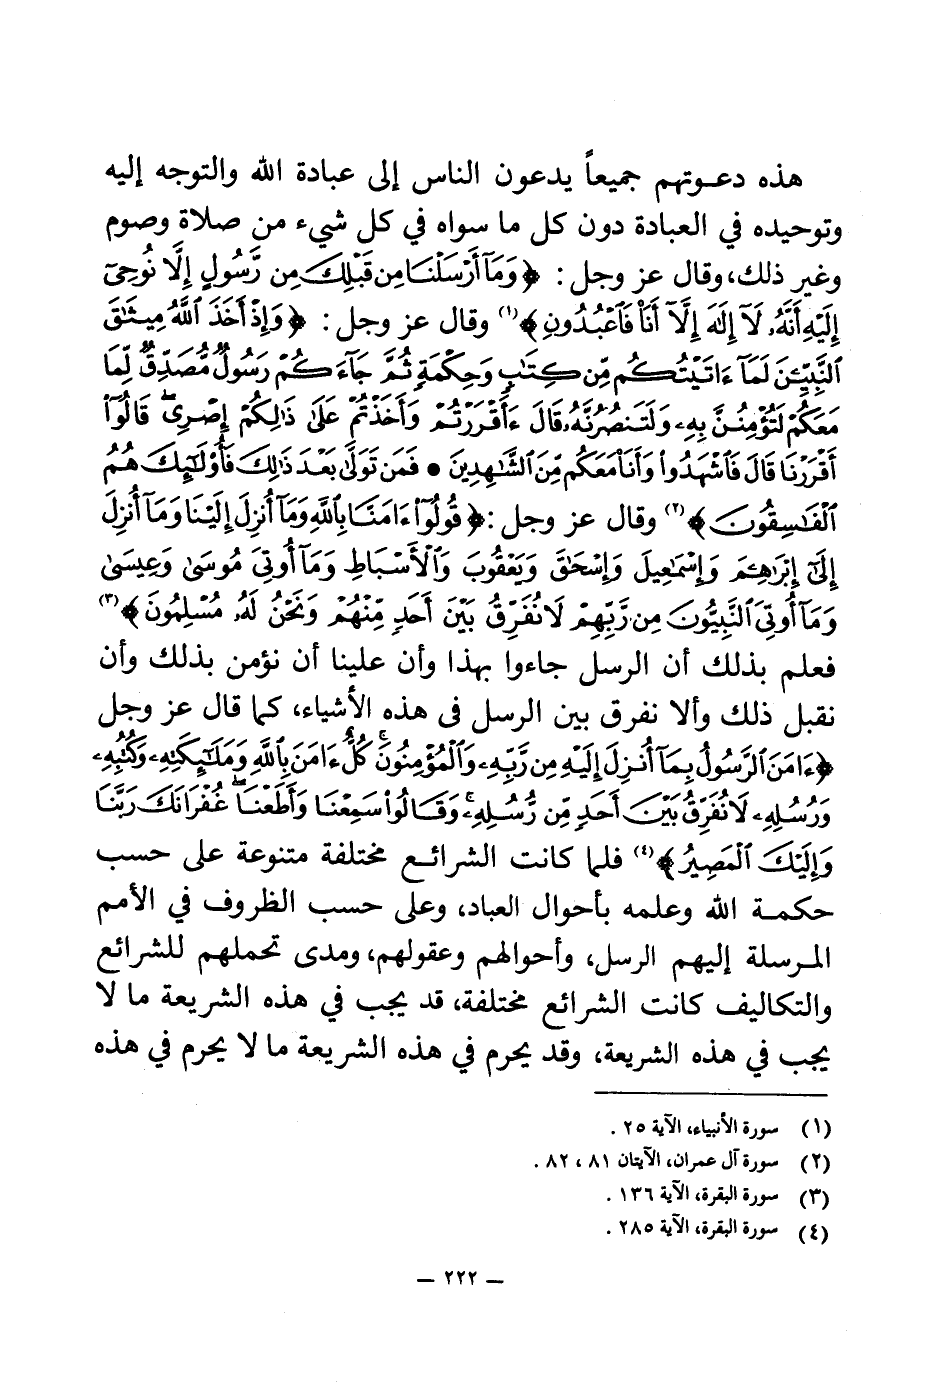 هذه دعـوتهم جميعاً يدعون الناس إلى عبادة الله والتوجه إليه
وتوحيده في العبادة دون كل ما سواه في كل شيء من صلاة وصوم
وغير ذلك، وقال عز وجل : ﴿وَمَآ أَرْسَلْنَا مِن قَبْلِكَ مِن رَّسُولٍ إِلَّا نُوحِىٓ
إِلَيْهِ أَنَّهُۥ لَآ إِلَٰهَ إِلَّآ أَنَا۠ فَٱعْبُدُونِ﴾(١) وقال عز وجل : ﴿وَإِذْ أَخَذَ ٱللَّهُ مِيثَٰقَ
ٱلنَّبِيِّـۧنَ لَمَآ ءَاتَيْتُكُم مِّن كِتَٰبٍ وَحِكْمَةٍ ثُمَّ جَآءَكُمْ رَسُولٌ مُّصَدِّقٌ لِّمَا
مَعَكُمْ لَتُؤْمِنُنَّ بِهِۦ وَلَتَنصُرُنَّهُۥ قَالَ ءَأَقْرَرْتُمْ وَأَخَذْتُمْ عَلَىٰ ذَٰلِكُمْ إِصْرِى ۖ قَالُوٓا۟
أَقْرَرْنَا قَالَ فَٱشْهَدُوا۟ وَأَنَا۠ مَعَكُم مِّنَ ٱلشَّٰهِدِينَ • فَمَن تَوَلَّىٰ بَعْدَ ذَٰلِكَ فَأُو۟لَٰٓئِكَ هُمُ
ٱلْفَٰسِقُونَ﴾(٢) وقال عز وجل : ﴿قُولُوٓا۟ ءَامَنَّا بِٱللَّهِ وَمَآ أُنزِلَ إِلَيْنَا وَمَآ أُنزِلَ
إِلَىٰٓ إِبْرَٰهِۦمَ وَإِسْمَٰعِيلَ وَإِسْحَٰقَ وَيَعْقُوبَ وَٱلْأَسْبَاطِ وَمَآ أُوتِىَ مُوسَىٰ وَعِيسَىٰ
وَمَآ أُوتِىَ ٱلنَّبِيُّونَ مِن رَّبِّهِمْ لَا نُفَرِّقُ بَيْنَ أَحَدٍ مِّنْهُمْ وَنَحْنُ لَهُۥ مُسْلِمُونَ﴾(٣)
فعلم بذلك أن الرسل جاءوا بهذا وأن علينا أن نؤمن بذلك وأن
نقبل ذلك وألا نفرق بين الرسل في هذه الأشياء، كما قال عز وجل
﴿ءَامَنَ ٱلرَّسُولُ بِمَآ أُنزِلَ إِلَيْهِ مِن رَّبِّهِۦ وَٱلْمُؤْمِنُونَ ۚ كُلٌّ ءَامَنَ بِٱللَّهِ وَمَلَٰٓئِكَتِهِۦ وَكُتُبِهِۦ
وَرُسُلِهِۦ لَا نُفَرِّقُ بَيْنَ أَحَدٍ مِّن رُّسُلِهِۦ ۚ وَقَالُوا۟ سَمِعْنَا وَأَطَعْنَا ۖ غُفْرَانَكَ رَبَّنَا
وَإِلَيْكَ ٱلْمَصِيرُ﴾(٤) فلما كانت الشرائـع مختلفة متنوعة على حسب
حكمـة الله وعلمه بأحوال العباد، وعلى حسب الظروف في الأمم
المـرسلة إليهم الرسل، وأحوالهم وعقولهم، ومدى تحملهم للشرائع
والتكاليف كانت الشرائع مختلفة، قد يجب في هذه الشريعة ما لا
يجب في هذه الشريعة، وقد يحرم في هذه الشريعة ما لا يحرم في هذه
(١) سورة الأنبياء، الآية ٢٥ .
(٢) سورة آل عمران، الآيتان ٨١ ، ٨٢ .
(٣) سورة البقرة، الآية ١٣٦ .
(٤) سورة البقرة، الآية ٢٨٥ .
— ٢٢٢ —